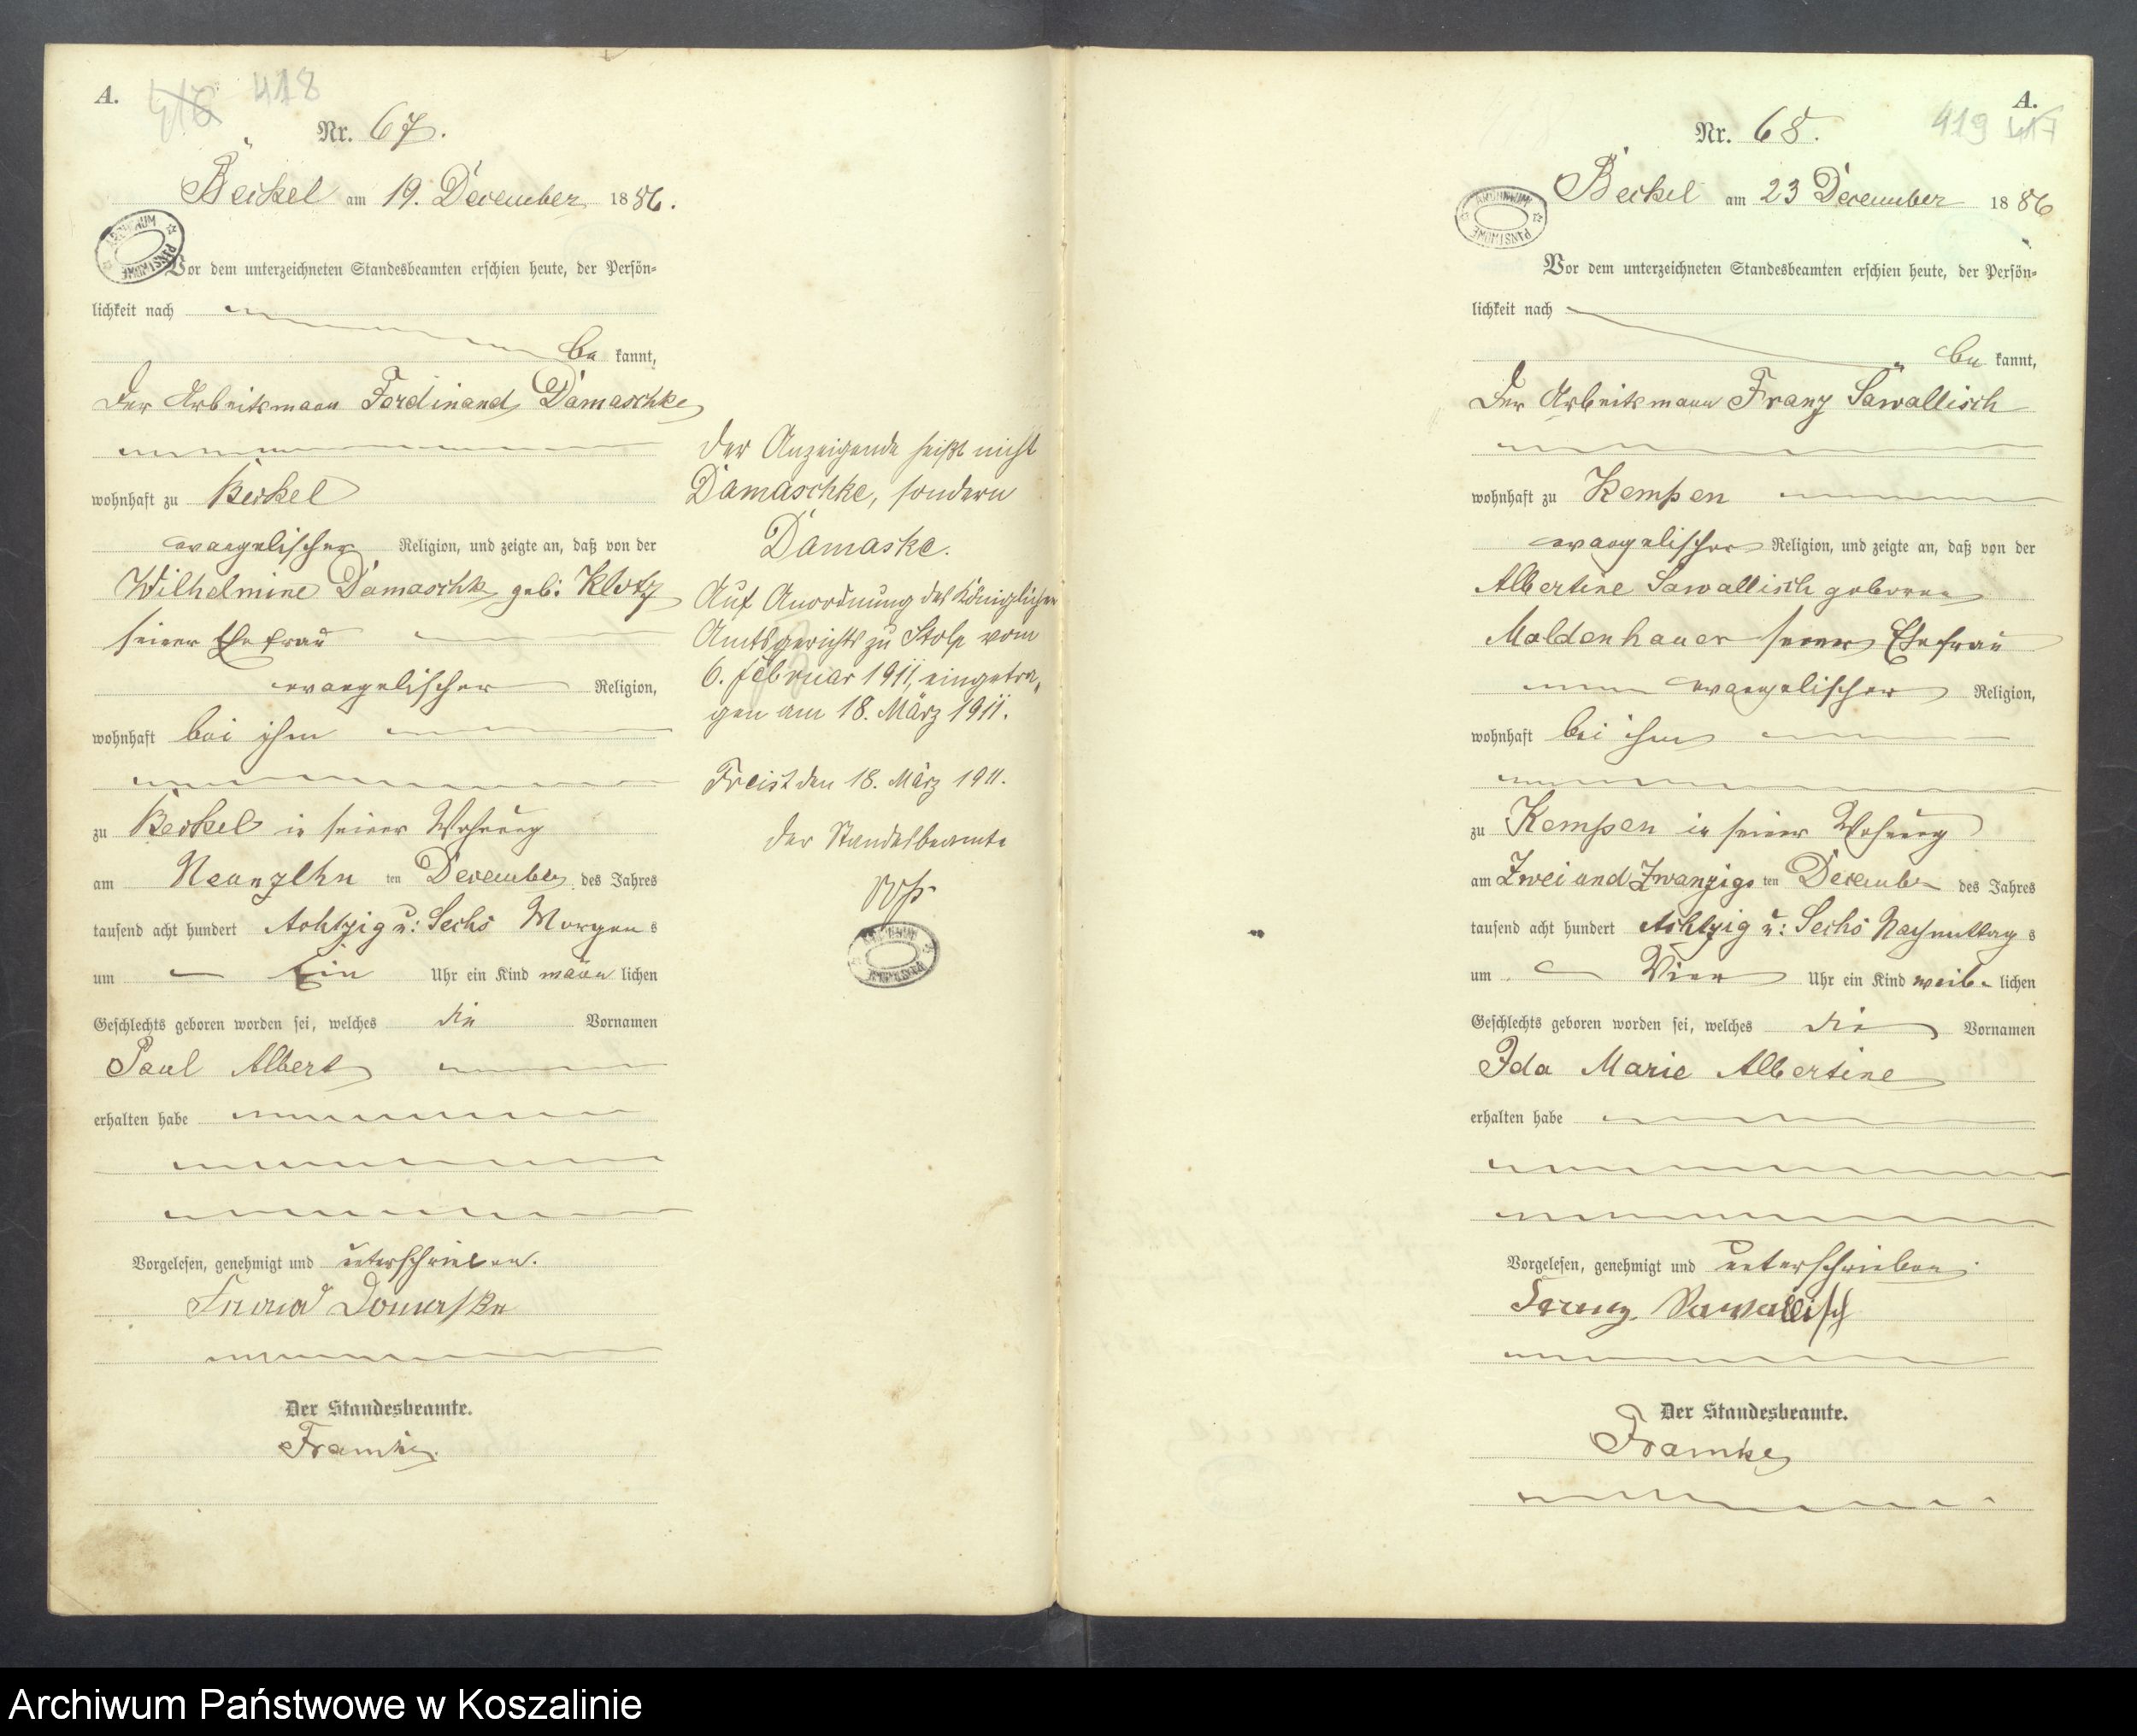 A.
416 418
Nr. 67.
Beckel am 19. December 1886.
Vor dem unterzeichneten Standesbeamten erschien heute, der Persön-
lichkeit nach
be kannt,
der Arbeitsmann Ferdinand Damaschke
wohnhaft zu Beckel
evangelischer Religion, und zeigte an, daß von der
Wilhelmine Damaschke geb: Klotz
seiner Ehefrau
evangelischer Religion,
wohnhaft bei ihm
zu Beckel in seiner Wohnung
am Neunzehn ten December des Jahres
tausend acht hundert Achtzig u: Sechs Morgen s
um Ein Uhr ein Kind männ lichen
Geschlechts geboren worden sei, welches die Vornamen
Paul Albert
erhalten habe
Vorgelesen, genehmigt und unterschrieben.
Damaske
Der Standesbeamte.
Framke
Der Anzeigende heißt nicht
Damaschke, sondern
Damaske.
Auf Anordnung des Königlichen
Amtsgerichts zu Stolp vom
6. Februar 1911, eingetra-
gen am 18. März 1911.
Freist den 18. März 1911.
Der Standesbeamte
A.
419 417
Nr. 68.
Beckel am 23 December 1886
Vor dem unterzeichneten Standesbeamten erschien heute, der Persön-
lichkeit nach
be kannt,
der Arbeitsmann Franz Sawallisch
wohnhaft zu Kempen
evangelischer Religion, und zeigte an, daß von der
Albertine Sawallisch geborene
Moldenhauer seiner Ehefrau
evangelischer Religion,
wohnhaft bei ihm
zu Kempen in seiner Wohnung
am Zwei und Zwanzigs ten December des Jahres
tausend acht hundert Achtzig u: Sechs Nachmittag s
um Vier Uhr ein Kind weib- lichen
Geschlechts geboren worden sei, welches die Vornamen
Ida Marie Albertine
erhalten habe
Vorgelesen, genehmigt und unterschrieben.
Franz Sawallisch
Der Standesbeamte.
Framke
Archiwum Państwowe w Koszalinie